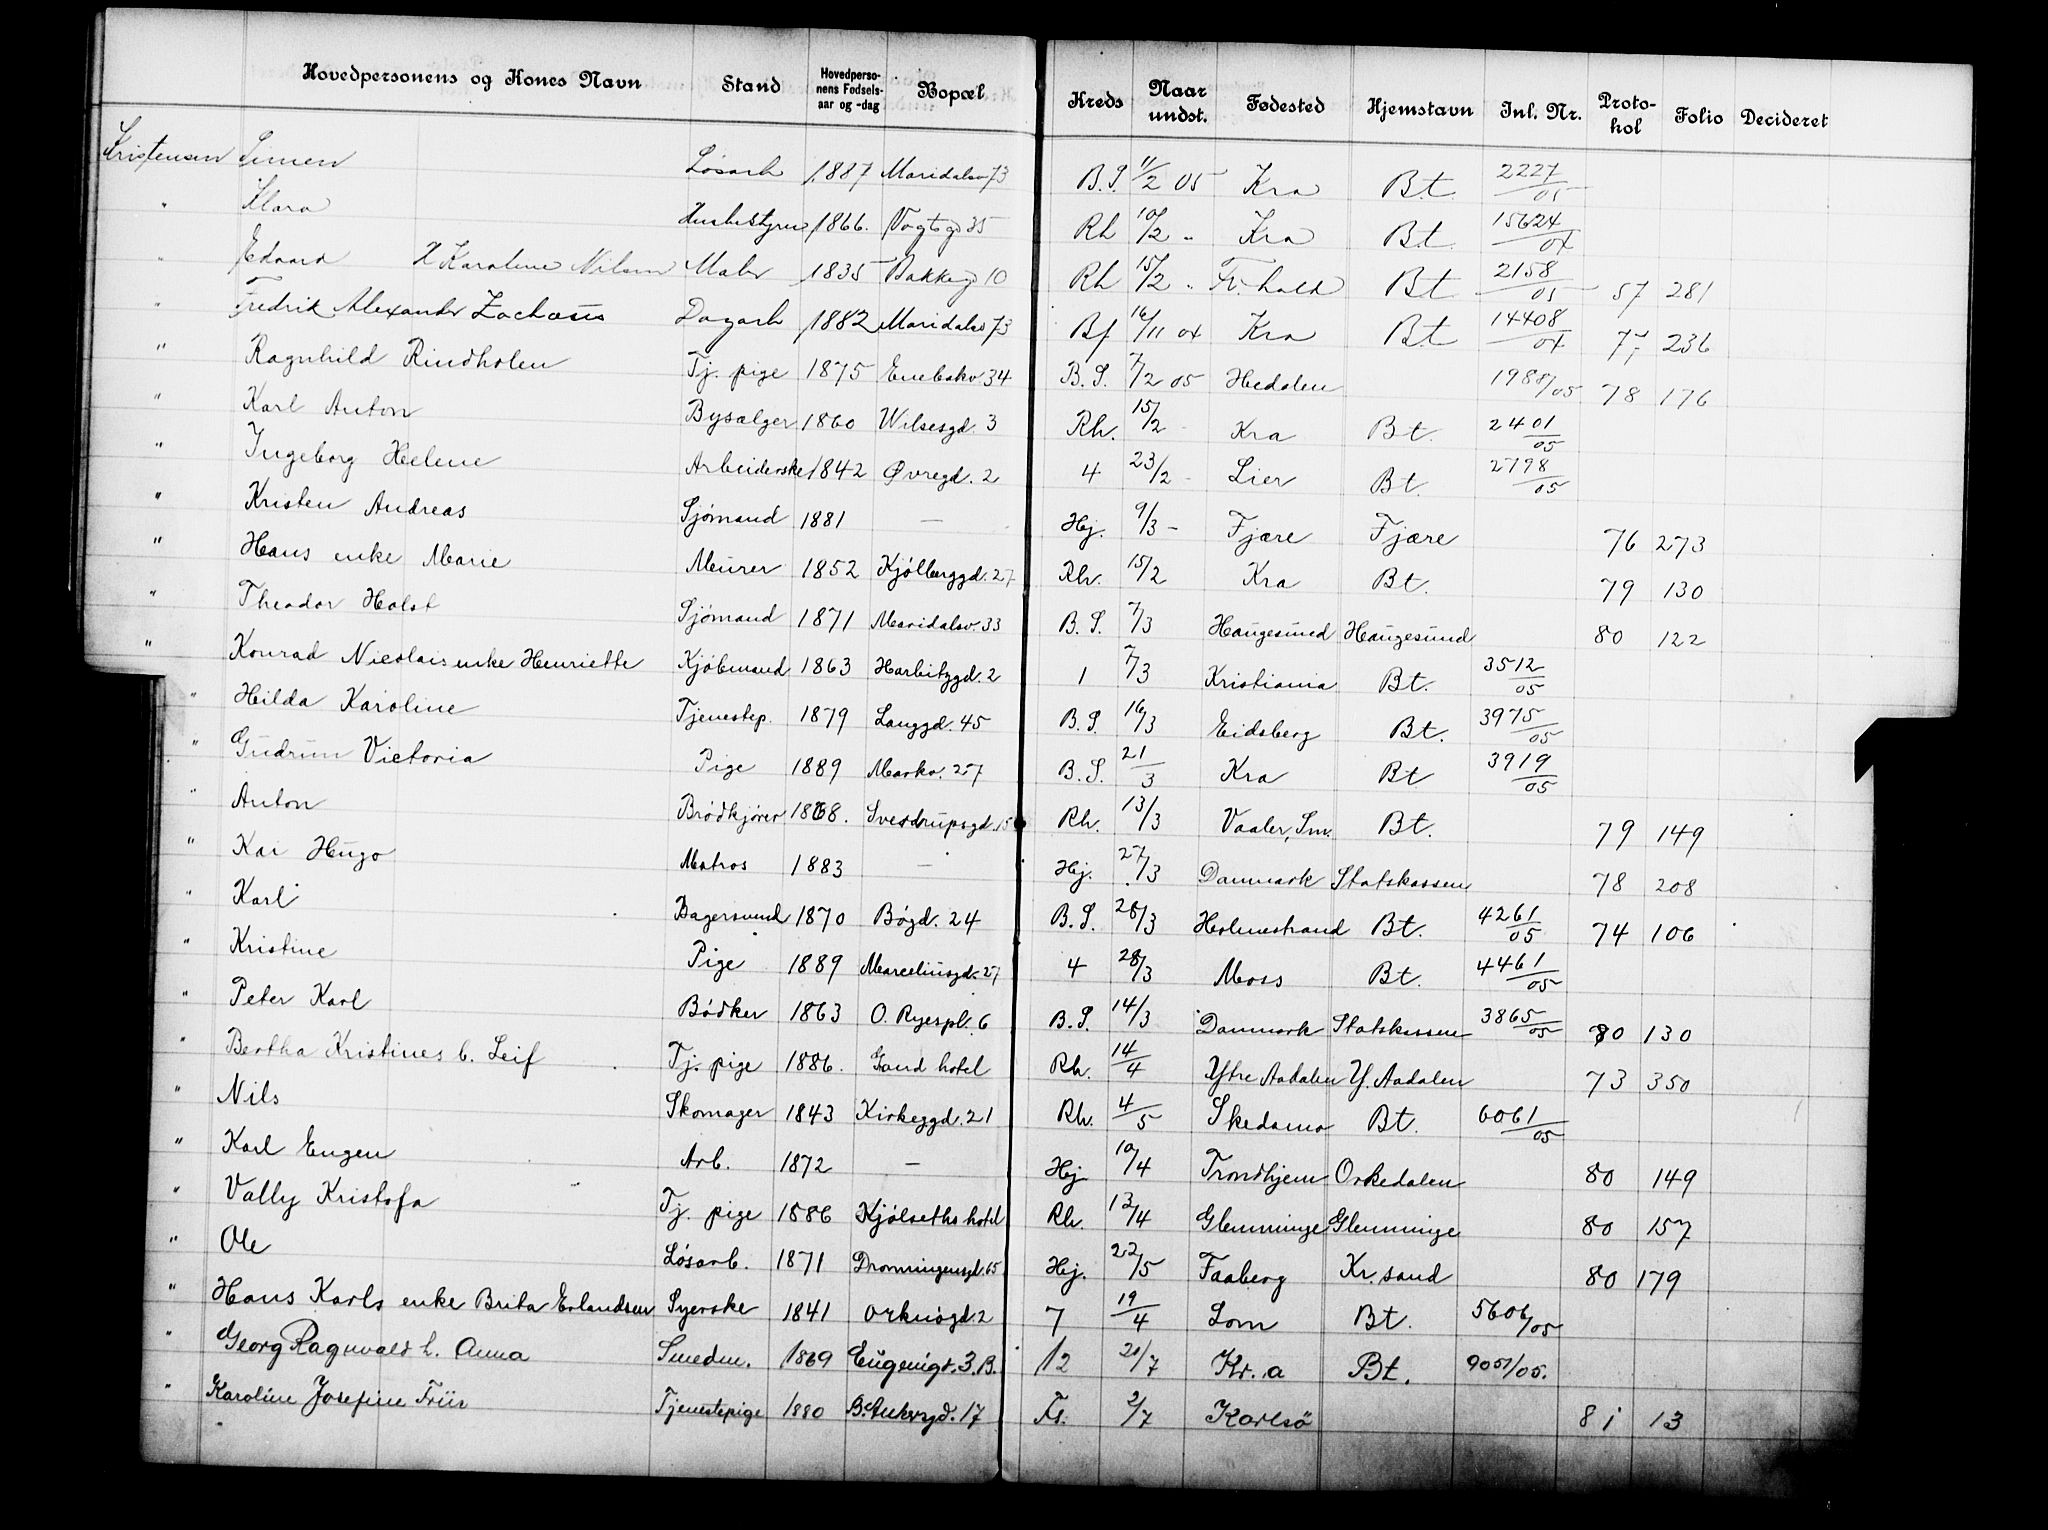 Hovedpersonens og Kones Navn Stand Hovedpersonens Fødselsaar og -dag Bopæl Kreds Naar undst. Fødested Hjemstavn Inl. Nr. Protokol Folio Decideret
Kristensen Simen Løsarb 1887 Maridalsv 73 B.S. 11/2 05 Kra Bt. 2227/05
" Klara Husbestyrer 1866. Vogtsgd 35 Rh 10/2 " Kra Bt. 15624/04
" Edvard H Karoline Nilsen Maler 1835 Bakkegd 10 Rh 15/2 " Fr.hald Bt 2158/05 57 281
" Fredrik Alexander Zachæus Dagarb 1882 Maridalsv 73 Bf 16/11 04 Kra Bt 14408/04 77 236
" Ragnhild Rindholen Tj. pige 1875 Enebakv 34 B.S. 7/2 05 Hedalen 1988/05 78 176
" Karl Anton Bysælger 1860 Wilsesgd. 3 Rh. 15/2 - Kra Bt. 2401/05
" Ingeborg Helene Arbeiderske 1842 Øvregd. 2 4 23/2 - Lier Bt. 2798/05
" Kristen Andreas Sjømand 1881 — Hj. 9/3 - Fjære Fjære 76 273
" Hans enke Marie Murer 1852 Kjølberggd. 27 Rh. 15/2 Kra Bt. 79 130
" Theodor Holst Sjømand 1871 Maridalsv. 33 B.S. 7/3 Haugesund Haugesund 80 122
" Konrad Nicolais enke Henriette Kjøbmand 1863 Harbitzgd. 2 1 7/3 Kristiania Bt. 3512/05
" Hilda Karoline Tjenestep. 1879 Langgd. 45 B.S. 16/3 Eidsberg Bt. 3975/05
" Gudrun Victoria Pige 1889 Markv. 27 B.S. 21/3 Kra Bt 3919/05
" Anton Brødkjører 1868. Sverdrupsgd. 15 Rh. 13/3 Vaaler, Sm. Bt. 79 149
" Kai Hugo Matros 1883 — Hj. 27/3 Danmark Statskassen 78 208
" Karl Bagersvend 1870 Bøgd. 24 B.S. 28/3 Holmestrand Bt. 4261/05 74 106
" Kristine Pige 1889 Marceliusgd. 27 4 28/3 Moss Bt. 4461/05
" Peter Karl Bødker 1863 O. Ryespl. 6 B.S. 14/3 Danmark Statskassen 3865/05 80 130
" Bertha Kristines b. Leif Tj. pige 1886. Grand hotel Rh. 14/4 Ytre Aadalen Y. Aadalen 73 350
" Nils Skomager 1843 Kirkeggd. 21 Rh. 4/5 Skedsmo Bt. 6061/05
" Karl Eugen Arb. 1872 — Hj. 10/4 Trondhjem Orkedalen 80 149
" Vally Kristofa Tj. pige 1886 Kjølseths hotel Rh. 13/4 Glemminge Glemminge 80 157
" Ole Løsarb. 1871 Dronningensgd. 65 Hj. 22/5 Faaberg Kr.sand 80 179
" Hans Karls enke Brita Erlandsen Syerske 1841 Orknøgd. 2 7 19/4 Lom Bt. 5606/05
" Georg Ragnvald h. Anna Smedm. 1869 Eugenigt. 3. B. 12 21/7 Kr.a Bt. 9051/05.
" Karoline Josefine Friis Tjenestepige 1880 B. Ankersgd. 17 Fs. 2/7 Karlsö 81 13